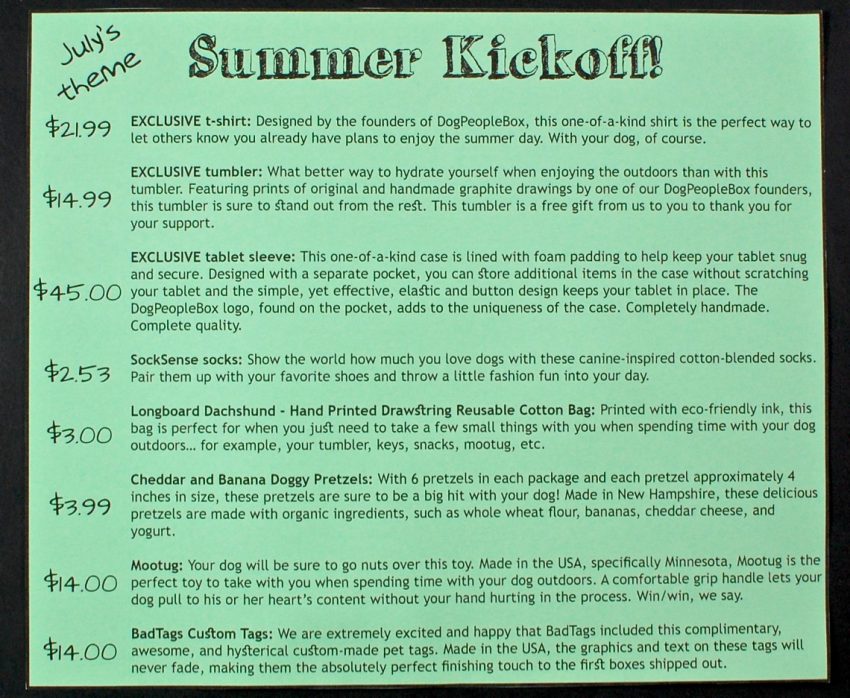 July's
theme
Summer Kickoff!
$21.99
EXCLUSIVE t-shirt: Designed by the founders of DogPeopleBox, this one-of-a-kind shirt is the perfect way to
let others know you already have plans to enjoy the summer day. With your dog, of course.
$14.99
EXCLUSIVE tumbler: What better way to hydrate yourself when enjoying the outdoors than with this
tumbler. Featuring prints of original and handmade graphite drawings by one of our DogPeopleBox founders,
this tumbler is sure to stand out from the rest. This tumbler is a free gift from us to you to thank you for
your support.
$45.00
EXCLUSIVE tablet sleeve: This one-of-a-kind case is lined with foam padding to help keep your tablet snug
and secure. Designed with a separate pocket, you can store additional items in the case without scratching
your tablet and the simple, yet effective, elastic and button design keeps your tablet in place. The
DogPeopleBox logo, found on the pocket, adds to the uniqueness of the case. Completely handmade.
Complete quality.
$2.53
SockSense socks: Show the world how much you love dogs with these canine-inspired cotton-blended socks.
Pair them up with your favorite shoes and throw a little fashion fun into your day.
$3.00
Longboard Dachshund - Hand Printed Drawstring Reusable Cotton Bag: Printed with eco-friendly ink, this
bag is perfect for when you just need to take a few small things with you when spending time with your dog
outdoors... for example, your tumbler, keys, snacks, mootug, etc.
$3.99
Cheddar and Banana Doggy Pretzels: With 6 pretzels in each package and each pretzel approximately 4
inches in size, these pretzels are sure to be a big hit with your dog! Made in New Hampshire, these delicious
pretzels are made with organic ingredients, such as whole wheat flour, bananas, cheddar cheese, and
yogurt.
$14.00
Mootug: Your dog will be sure to go nuts over this toy. Made in the USA, specifically Minnesota, Mootug is the
perfect toy to take with you when spending time with your dog outdoors. A comfortable grip handle lets your
dog pull to his or her heart's content without your hand hurting in the process. Win/win, we say.
$14.00
BadTags Custom Tags: We are extremely excited and happy that BadTags included this complimentary,
awesome, and hysterical custom-made pet tags. Made in the USA, the graphics and text on these tags will
never fade, making them the absolutely perfect finishing touch to the first boxes shipped out.